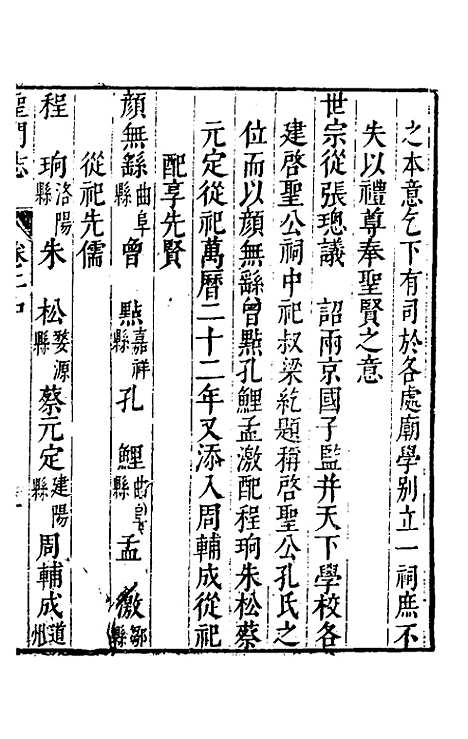 之本意乞下有司於各處廟學别立一祠庶不
失以禮尊奉聖賢之意
世宗從張璁議　詔兩京國子監并天下學校各
建啓聖公祠中祀叔梁紇題稱啓聖公孔氏之
位而以顔無繇曾點孔鯉孟激配程珦朱松蔡
元定從祀萬曆二十二年又添入周輔成從祀
配享先賢
顔無繇曲阜縣　曾　點嘉祥縣　孔　鯉曲阜縣　孟　激鄒縣
從祀先儒
程　珦洛陽縣　朱　松婺源縣　蔡元定建陽縣　周輔成道州
龍門志　卷之中